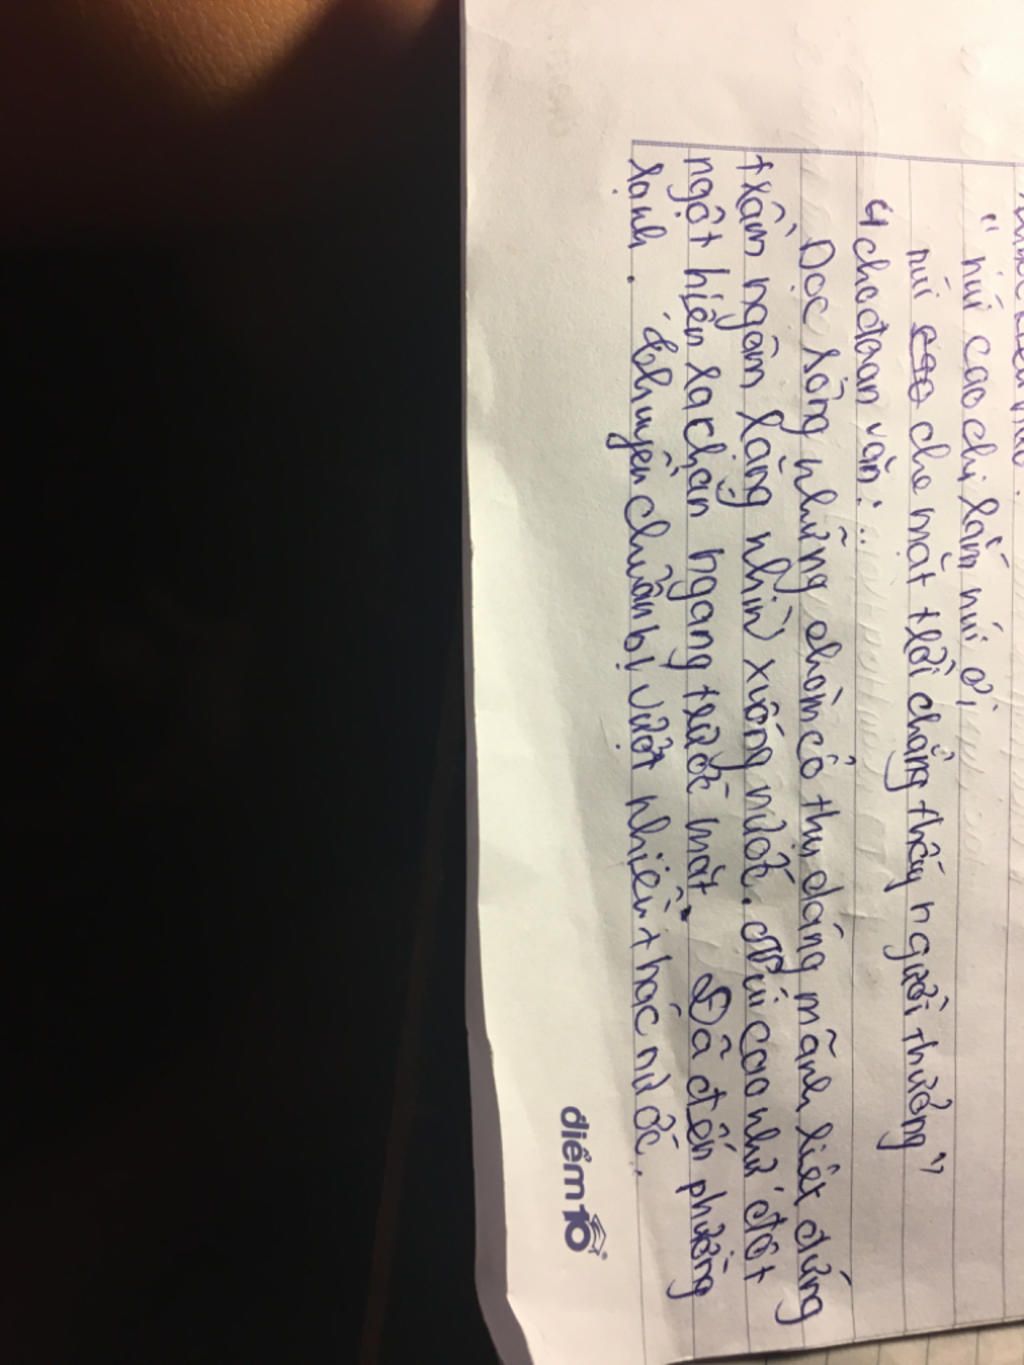 " núi cao chi lắm núi ơi
núi cao che mặt trời chẳng thấy người thương "
4 cho đoan văn: ..
Dọc sông những chòm cổ thụ dáng mãnh liệt đứng
trầm ngâm lặng nhìn xuống nước. Núi cao như đột
ngột hiện ra chắn ngang trước mặt. Đã đến phường
rạnh. thuyền chuẩn bị vượt nhiều thác nước.
điểm 10